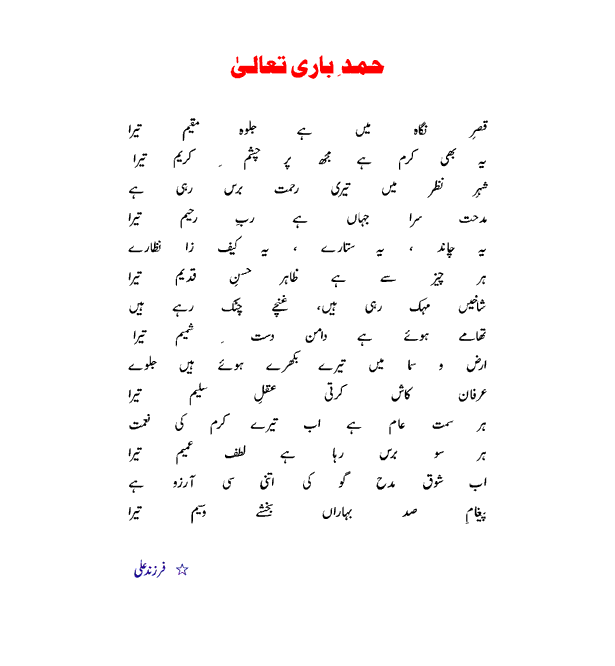 حمدِ باری تعالیٰ
قصرِ نگاہ میں ہے جلوہ مقیم تیرا
یہ بھی کرم ہے مجھ پر چشمِ کریم تیرا
شہرِ نظر میں تیری رحمت برس رہی ہے
مدحت سرا جہاں ہے ربِ رحیم تیرا
یہ چاند ، یہ ستارے ، یہ کیف زا نظارے
ہر چیز سے ہے ظاہر حسنِ قدیم تیرا
شاخیں مہک رہی ہیں، غنچے چٹک رہے ہیں
تھامے ہوئے ہے دامن دستِ شمیم تیرا
ارض و سما میں تیرے بکھرے ہوئے ہیں جلوے
عرفان کاش کرتی عقلِ سلیم تیرا
ہر سمت عام ہے اب تیرے کرم کی نعمت
ہر سو برس رہا ہے لطف عمیم تیرا
اب شوق مدح گو کی اتنی سی آرزو ہے
پیغامِ صد بہاراں بخشے وسیم تیرا
☆ فرزند علی